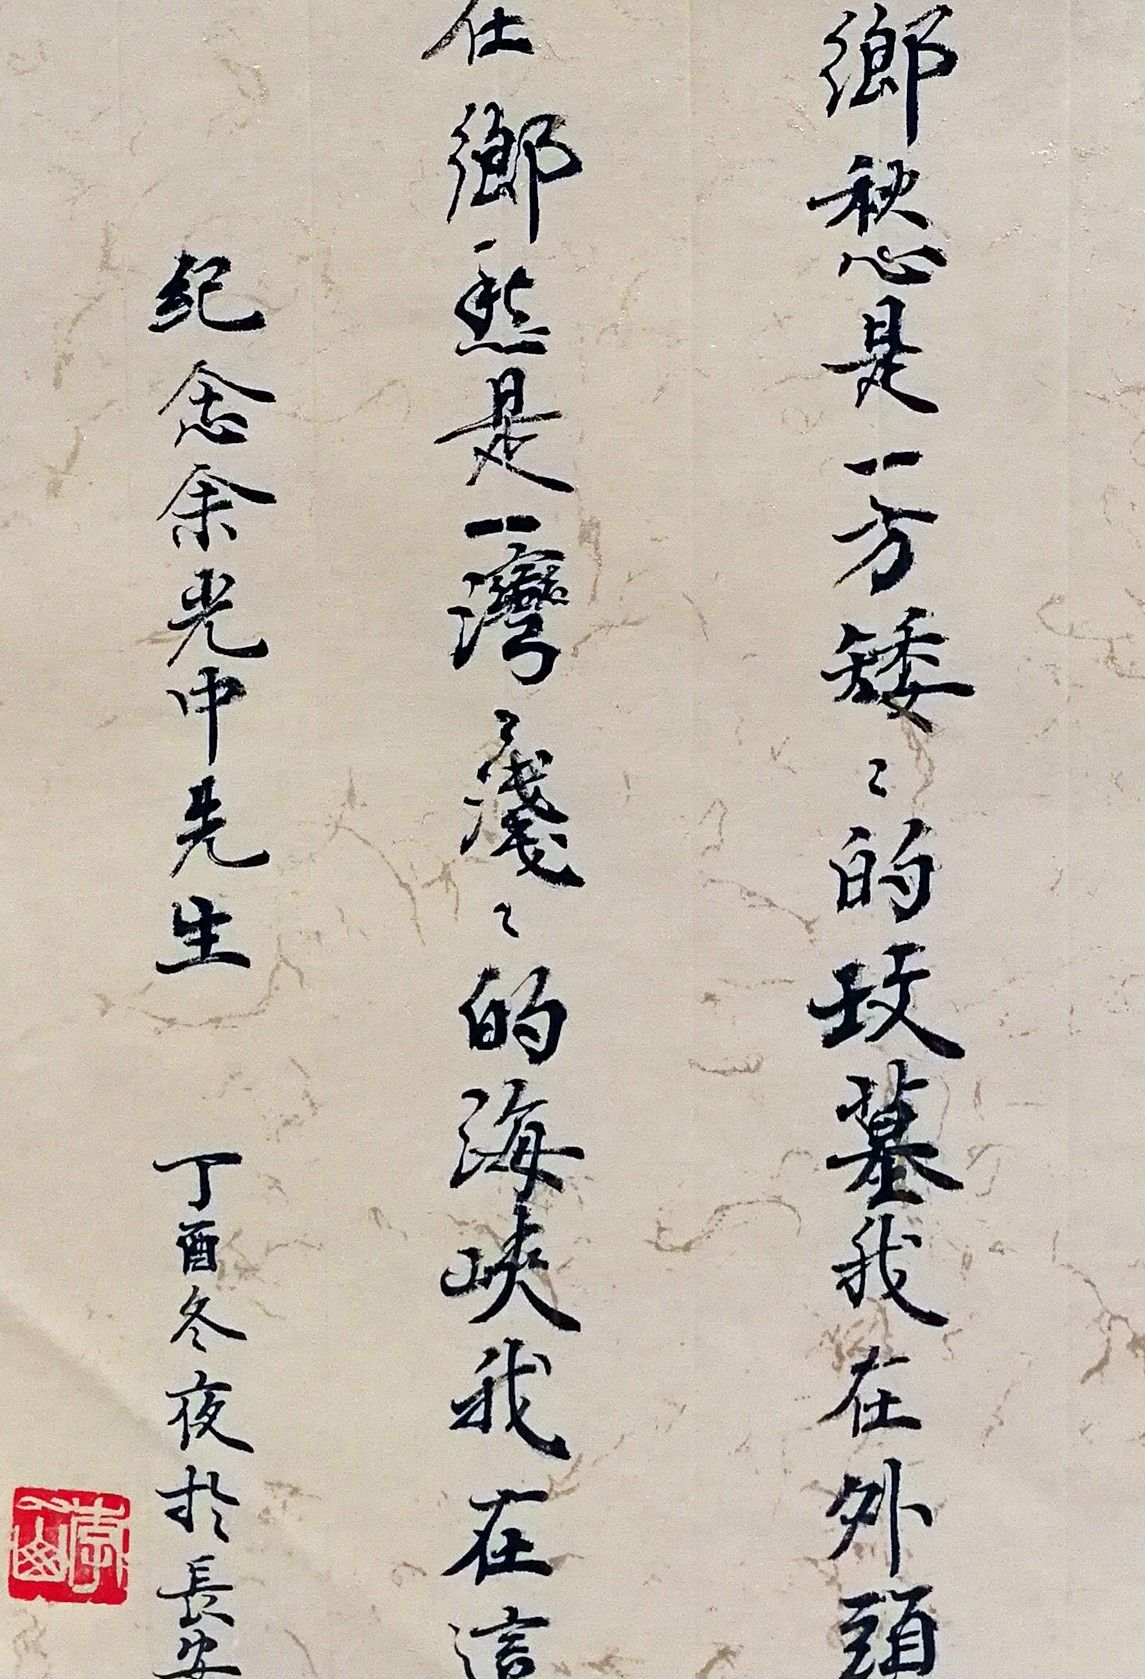 鄉愁是一方矮々的坟墓我在外頭
在鄉愁是一灣々淺々的海峽我在這
纪念余光中先生 丁酉冬夜於長安